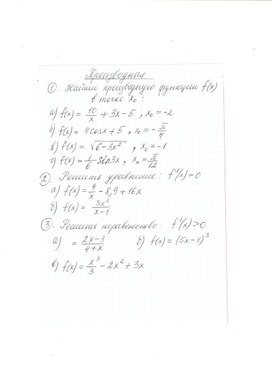 Производная
① Найти производную функции f(x)
в точке x₀:
а) f(x) = 10/x + 3x - 5, x₀ = -2
б) f(x) = 4cosx + 5, x₀ = -π/4
в) f(x) = √(6-3x²), x₀ = -1
г) f(x) = 1/6 sin3x, x₀ = π/12
② Решить уравнение: f'(x) = 0
а) f(x) = 6/x - 8,9 + 16x
б) f(x) = 3x²/(x-1)
③ Решить неравенство: f'(x) > 0
а) = (2x-3)/(4+x) б) f(x) = (5x-1)³
в) f(x) = x³/3 - 2x² + 3x